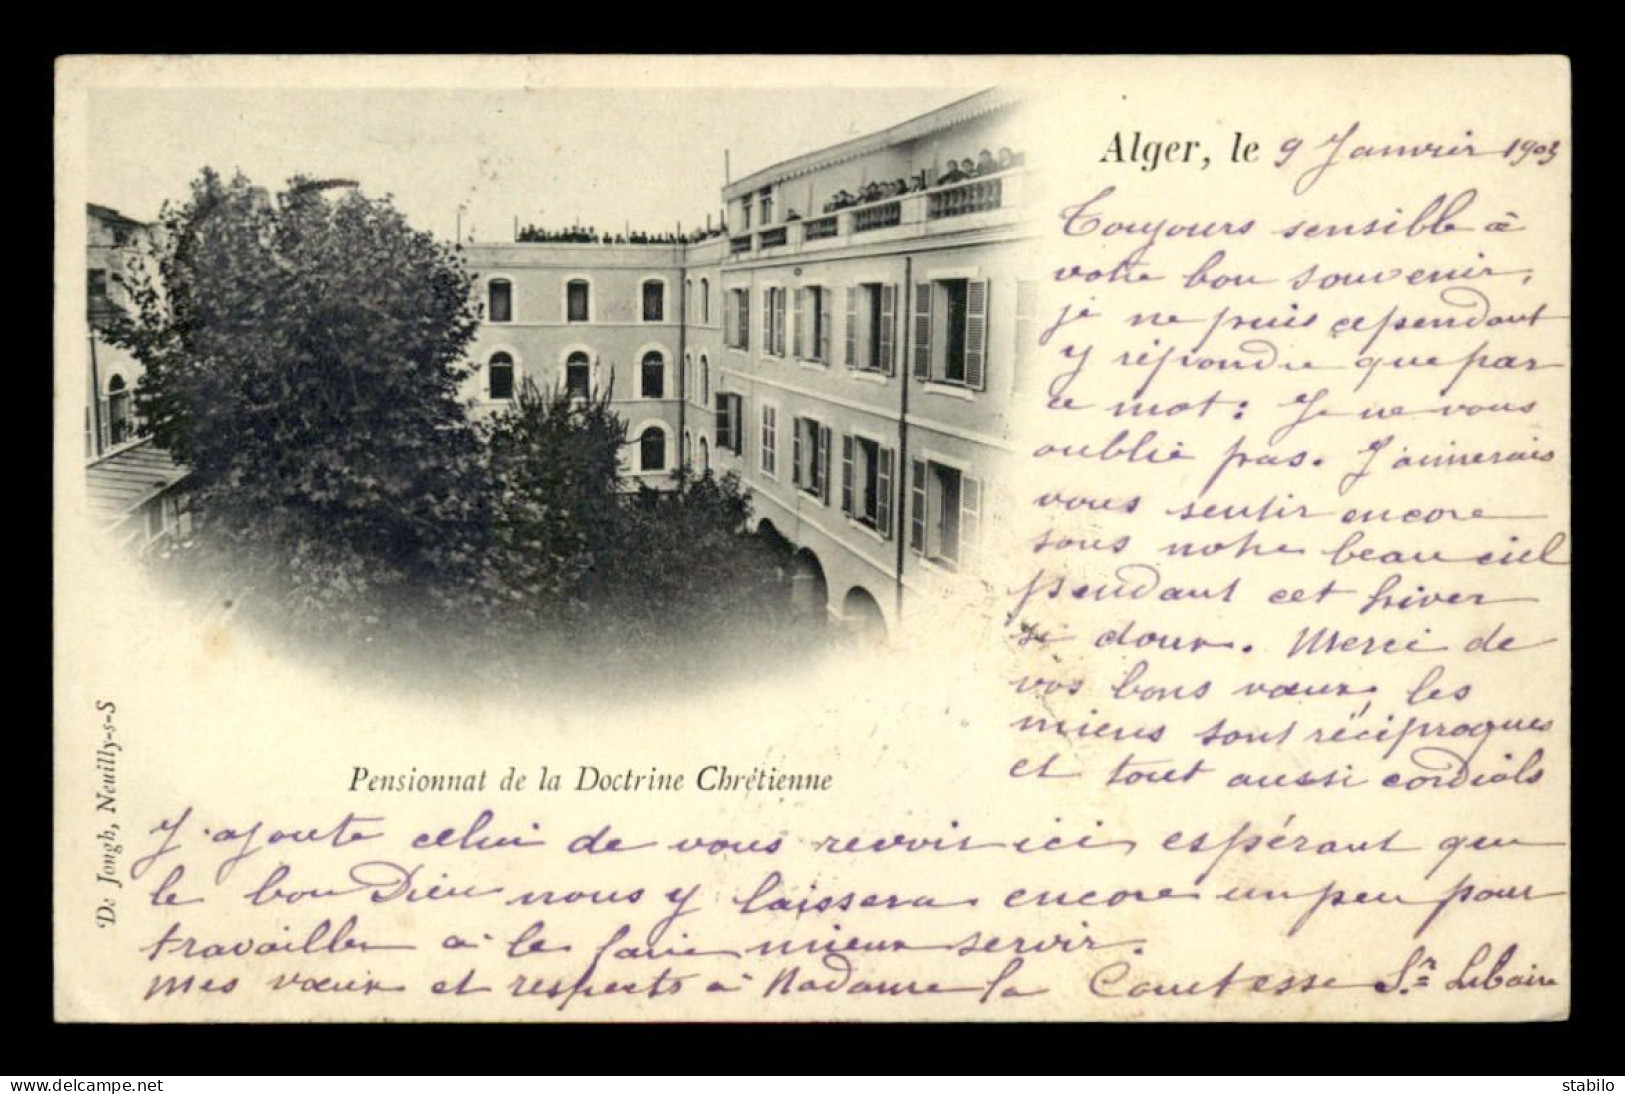 Alger, le 9 Janvier 1903
Toujours sensible à
votre bon souvenir,
je ne puis cependant
y répondre que par
ce mot : Je ne vous
oublie pas. J'aimerais
vous sentir encore
sous notre beau ciel
pendant cet hiver
si doux. Merci de
vos bons vœux, les
miens sont réciproques
et tout aussi cordials
Pensionnat de la Doctrine Chrétienne
D. Jongh, Neuilly-s-S
J'ajoute celui de vous revoir ici, espérant que
le bon Dieu nous y laissera encore un peu pour
travailler à le faire mieux servir.
mes vœux et respects à Madame la Comtesse Sr
delcampe.net
stabilo